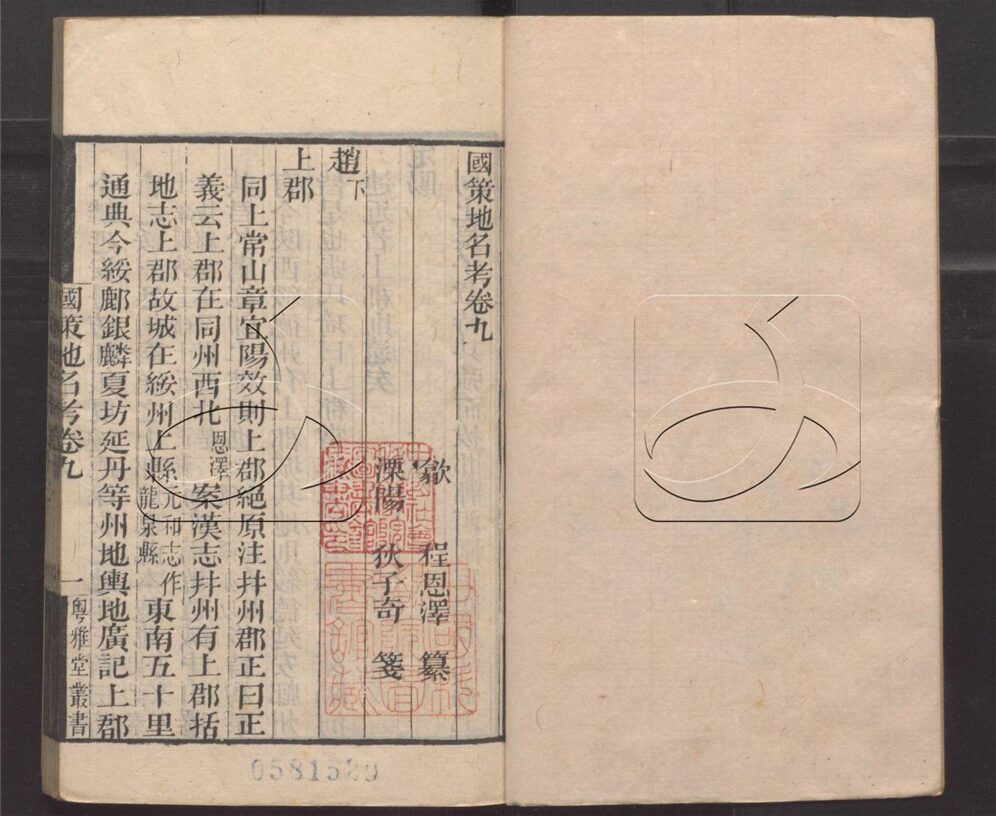 國策地名考卷九
歙 程恩澤 纂
溧陽 狄子奇 箋
趙下
上郡
同上常山章宜陽效則上郡絕原注幷州郡正曰正
義云上郡在同州西北恩澤案漢志幷州有上郡括
地志上郡故城在綏州上縣元和志作龍泉縣東南五十里
通典今綏鄜銀麟夏坊延丹等州地輿地廣記上郡
國策地名考卷九 一 粵雅堂叢書